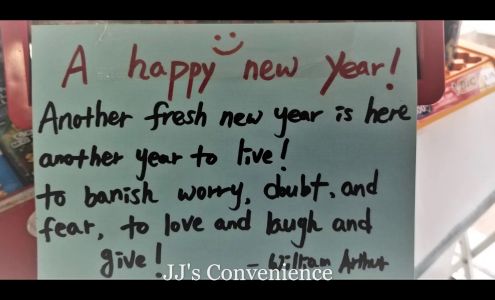 A happy new year!
Another fresh new year is here
another year to live!
to banish worry, doubt, and
fear, to love and laugh and
give!
- William Arthur
JJ's Convenience